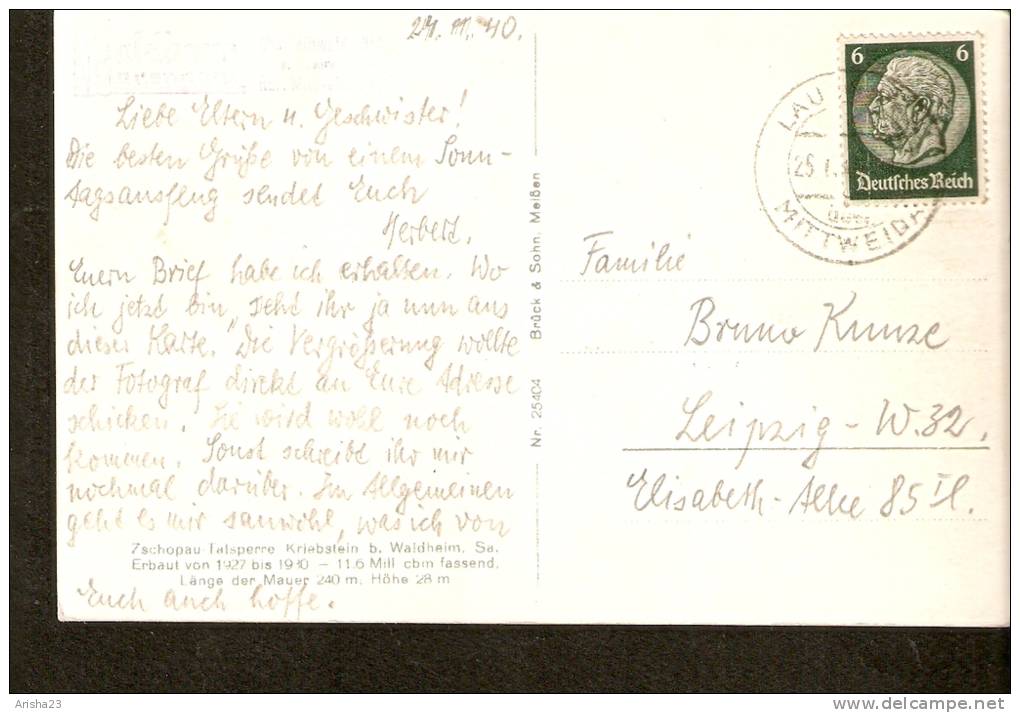 24. 11. 40.
Liebe Eltern u. Geschwister!
Die besten Grüße von einem Sonn-
tagsausflug sendet Euch
Herbert.
Euern Brief habe ich erhalten. Wo
ich jetzt bin, seht ihr ja nun aus
dieser Karte. Die Vergrößerung wollte
der Fotograf direkt an Eure Adresse
schicken. Sie wird wohl noch
kommen. Sonst schreibt ihr mir
nochmal darüber. Im Allgemeinen
geht es mir sauwohl, was ich von
Zschopau-Talsperre Kriebstein b. Waldheim, Sa.
Erbaut von 1927 bis 1930 – 11.6 Mill cbm fassend.
Länge der Mauer 240 m, Höhe 28 m
Euch auch hoffe.
Nr. 25404 Brück & Sohn, Meißen
6 6
Deutsches Reich
LAU
MITTWEIDA
Familie
Bruno Kunze
Leipzig - W. 32.
Elisabeth-Allee 85 II.
Arisha23
delcampe.net